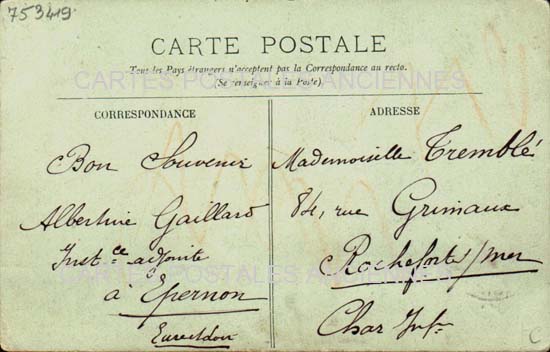 753419.
CARTE POSTALE
Tous les Pays étrangers n'acceptent pas la Correspondance au recto.
(Se renseigner à la Poste).
CARTES POSTALES ANCIENNES
CORRESPONDANCE
Bon Souvenir
Albertine Gaillard
Inst.ce adjointe
à Epernon
Eure et Loir
ADRESSE
Mademoiselle Tremblé
84, rue Grimaux
Rochefort s/mer
Char Infre
CARTES POSTALES ANCIENNES
C